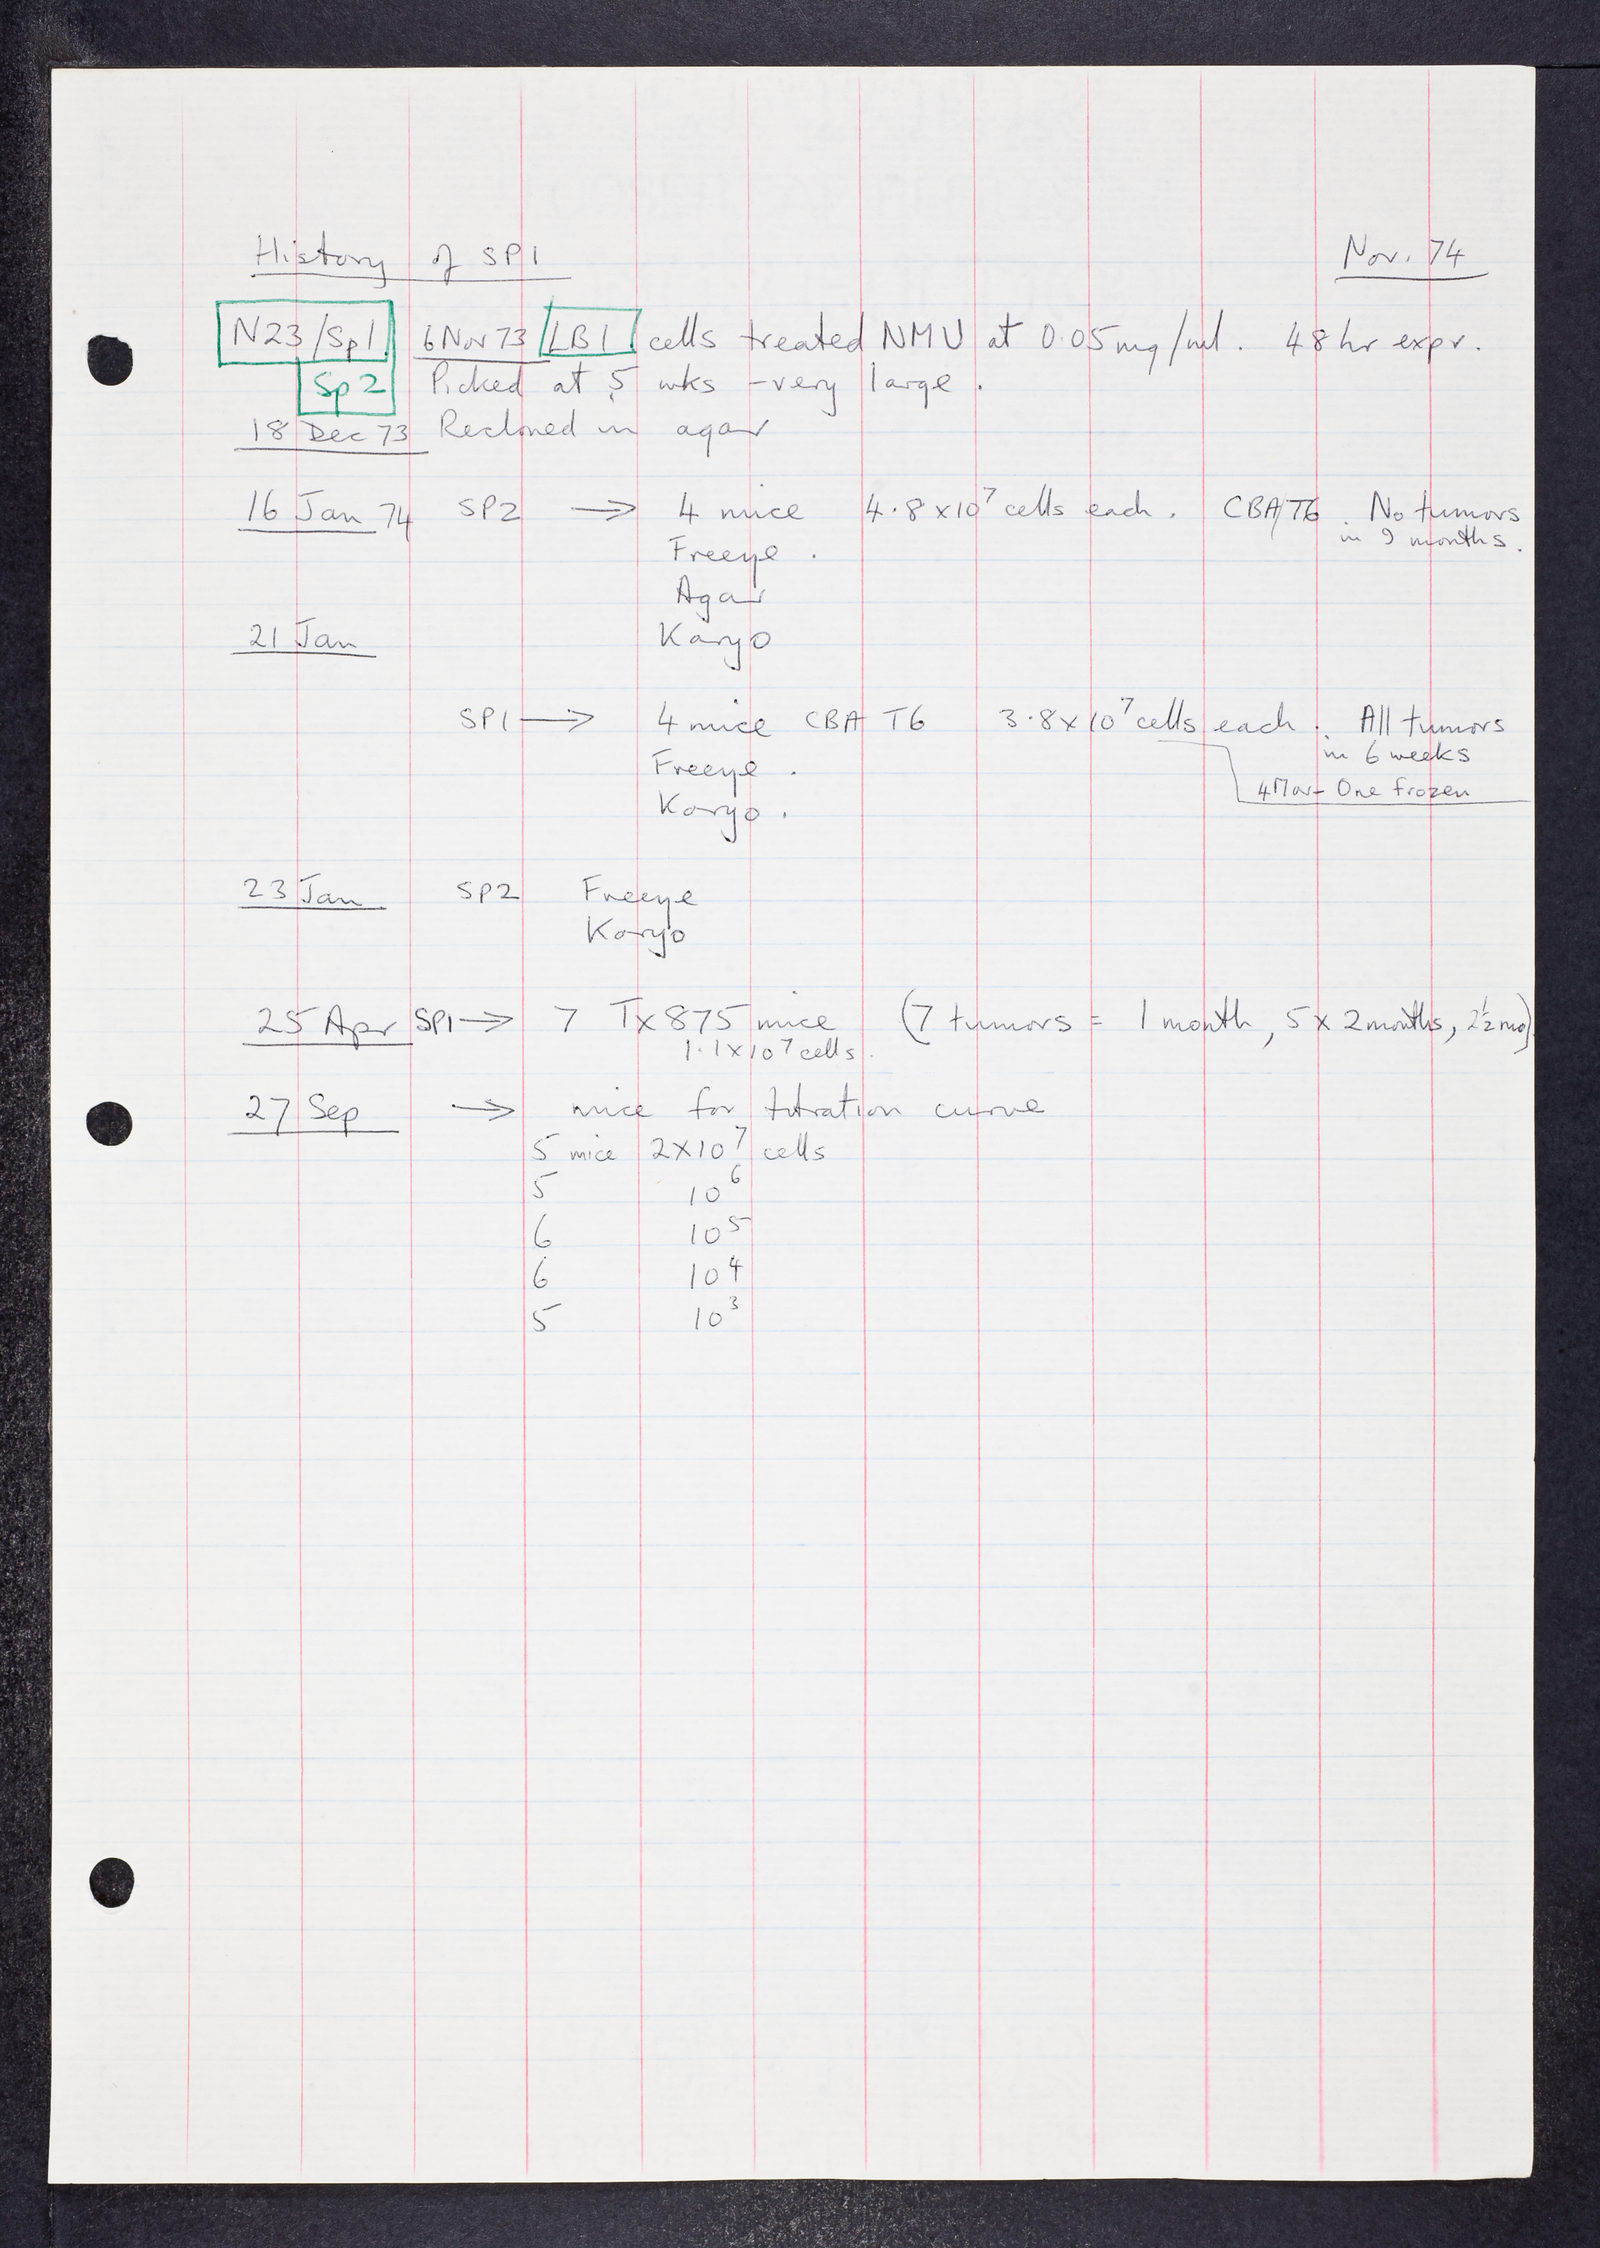 History of SP1 Nov. 74
N23/Sp1 6 Nov 73 LB1 cells treated NMU at 0.05 mg/ml. 48 hr expr.
Sp2 Picked at 5 wks - very large.
18 Dec 73 Recloned in agar
16 Jan 74 SP2 → 4 mice 4.8 x 10⁷ cells each. CBA/T6. No tumors
in 9 months.
Freeze.
Agar
21 Jan Karyo
SP1 → 4 mice CBA T6 3.8 x 10⁷ cells each. All tumors
in 6 weeks
Freeze.
4 Mar - One frozen
Karyo.
23 Jan SP2 Freeze
Karyo
25 Apr SP1 → 7 Tx 875 mice (7 tumors = 1 month, 5 x 2 months, 2½ mo)
1.1 x 10⁷ cells.
27 Sep → mice for titration curve
5 mice 2 x 10⁷ cells
5 10⁶
6 10⁵
6 10⁴
5 10³